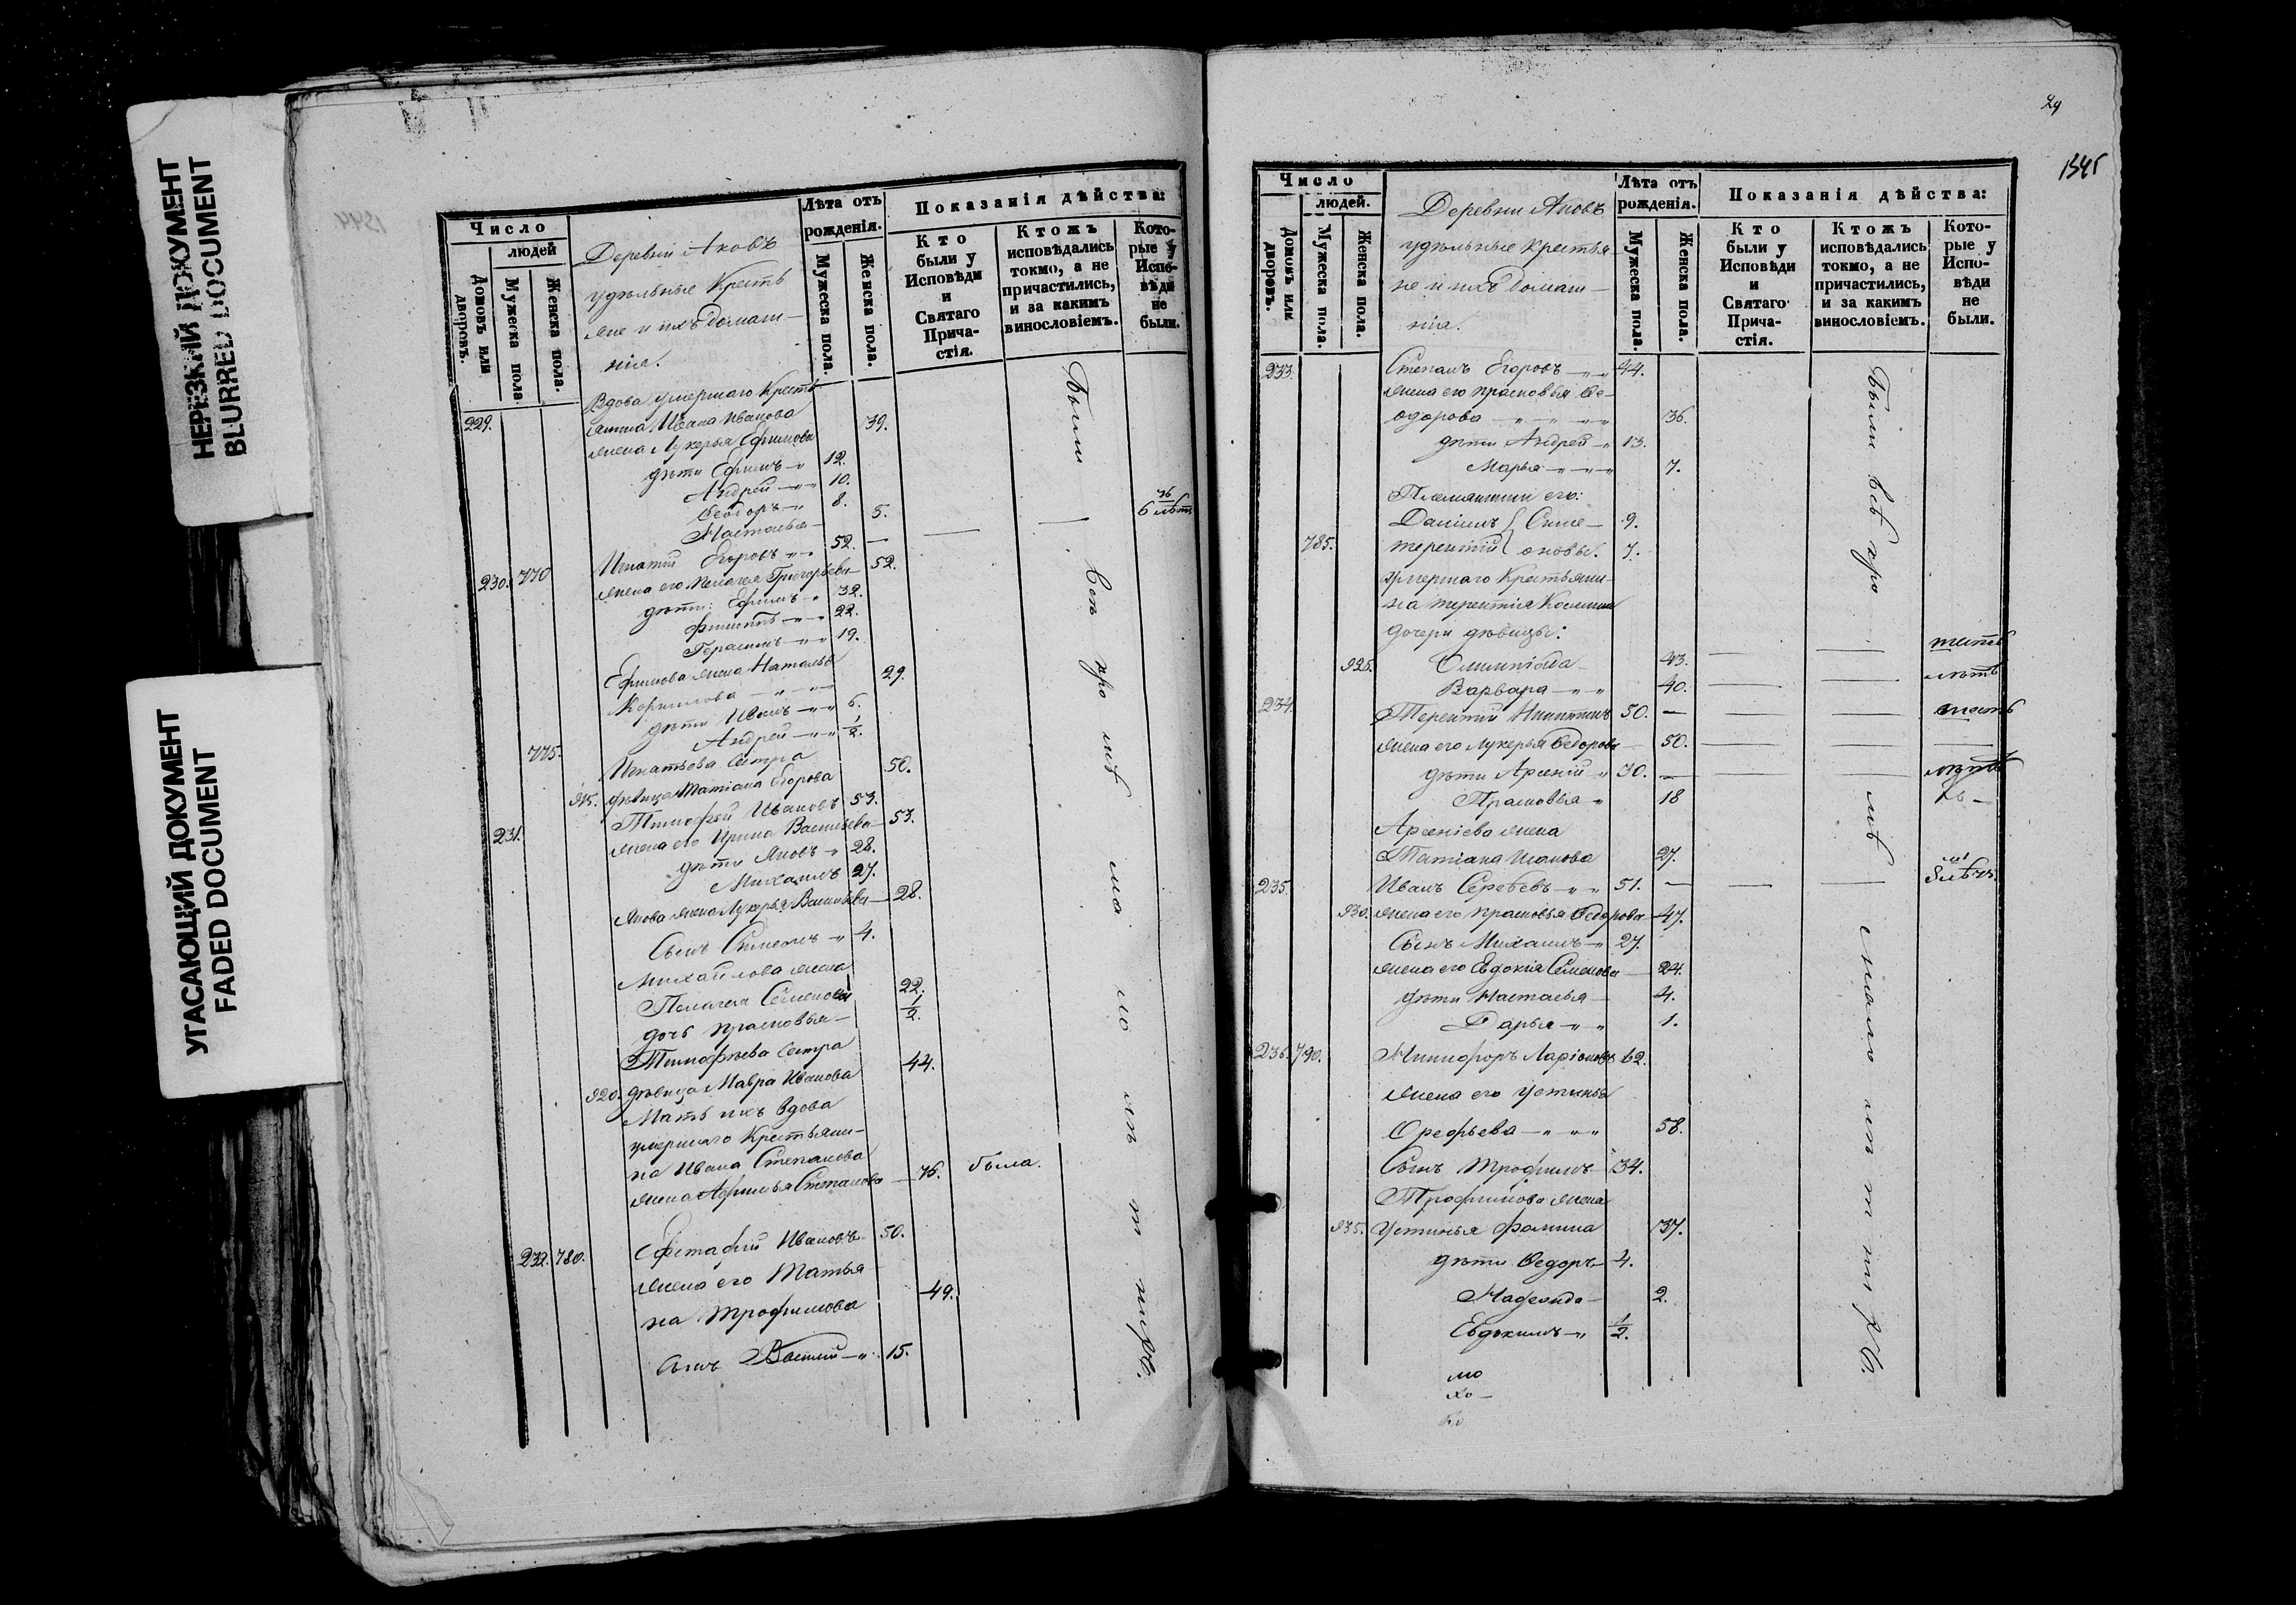 НЕРЕЗКИЙ ДОКУМЕНТ
BLURRED DOCUMENT
УГАСАЮЩИЙ ДОКУМЕНТ
FADED DOCUMENT
Число
людей
Домовъ или дворовъ.
Мужеска пола
Женска пола.
Деревни Аковъ
удѣльные Кресть
яне и ихъ домаш-
нія.
Лѣта отъ рожденія.
Мужеска пола.
Женска пола.
Показанія дѣйства:
Кто были у Исповѣди и Святаго Прича-стія.
Ктожъ исповѣдались токмо, а не причастились, и за какимъ винословіемъ.
Кото-рые у Испо-вѣди не были.
Вдова умершаго Кресть
229. янина Ивана Иванова
жена Лукерья Ефимова 39.
дѣти Ефимъ 12.
Андрей 10.
Ѳеодоръ 8.
Настасья 5.
6 лѣтъ
230. 770 Игнатій Егоровъ 52. —
жена его Пелагея Григорьева 52.
дѣти: Ефимъ 32.
Филиппъ 22.
Герасимъ 19.
Ефимова жена Наталья
Корнилова 29.
дѣти Иванъ 6.
775. Андрей 1/2.
Игнатьева сестра
915. дѣвица Татіана Егорова 50.
231. Тимофей Ивановъ 53.
жена его Ирина Васильева 53.
дѣти Яковъ 28.
Михаилъ 27.
Якова жена Лукерья Васильева 28.
Сынъ Симеонъ 4.
Михайлова жена
Пелагея Семенова 22.
дочь Прасковья 1/2.
Тимофѣева сестра
920. дѣвица Мавра Иванова 44.
Мать ихъ вдова
умершаго Крестьяни-
на Ивана Степанова
жена Афимья Степанова 76. была.
232. 780. Евстафій Ивановъ 50.
жена его Татья
на Трофимова 49.
сынъ Василій 15.
Были
29
1345
Число
людей.
Домовъ или дворовъ.
Мужеска пола.
Женска пола.
Деревни Аковъ
удѣльные Крестья
не и ихъ домаш-
нія.
Лѣта отъ рожденія.
Мужеска пола.
Женска пола.
Показанія дѣйства:
Кто были у Исповѣди и Святаго Прича-стія.
Ктожъ исповѣдались токмо, а не причастились, и за какимъ винословіемъ.
Кото-рые у Испо-вѣди не были.
233. Степанъ Егоровъ 44.
жена его Прасковья Ѳе-
одорова 36.
дѣти Андрей 13.
Марья 7.
Племянники его:
Даніилъ } Симе- 9.
785. Терентій } оновы. 7.
Умершаго Крестьяни-
на Терентія Космина
дочери дѣвицы:
925. Олимпіада 43.
Варвара 40. лѣтъ
234. Терентій Никитинъ 50. —
жена его Лукерья Ѳедорова 50.
дѣти Арсеній 30. —
Прасковья 18
Арсеніева жена
Татіана Исакова 27.
235. Иванъ Сергѣевъ 51. —
930. жена его Прасковья Ѳедорова 47.
Сынъ Михаилъ 27.
жена его Евдокія Семенова 24.
дѣти Настасья 4.
Дарья 1.
236. 790. Никифоръ Ларіоновъ 62.
жена его Устинья
Орефьева 58.
Сынъ Трофимъ 34.
Трофимова жена
935. Устинья Фомина 37.
дѣти Ѳедоръ 4.
Надежда 2.
Евдокимъ 1/2.
Были